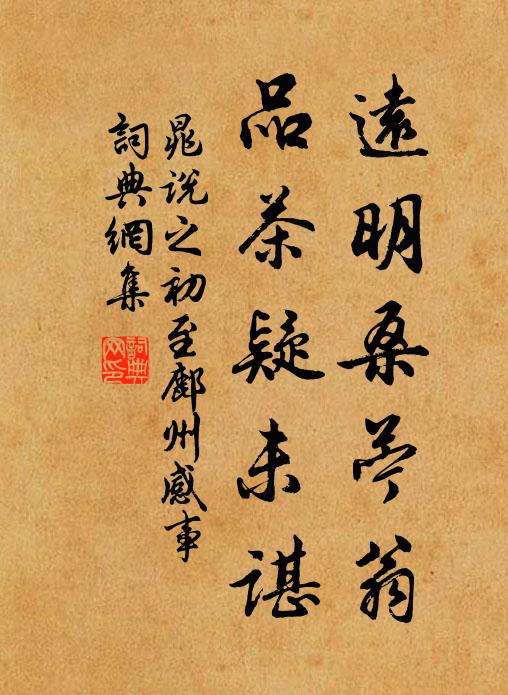 遠明桑苧翁
品茶疑未諶
晁說之初至鄜州感事
詞典網集
詞典网印